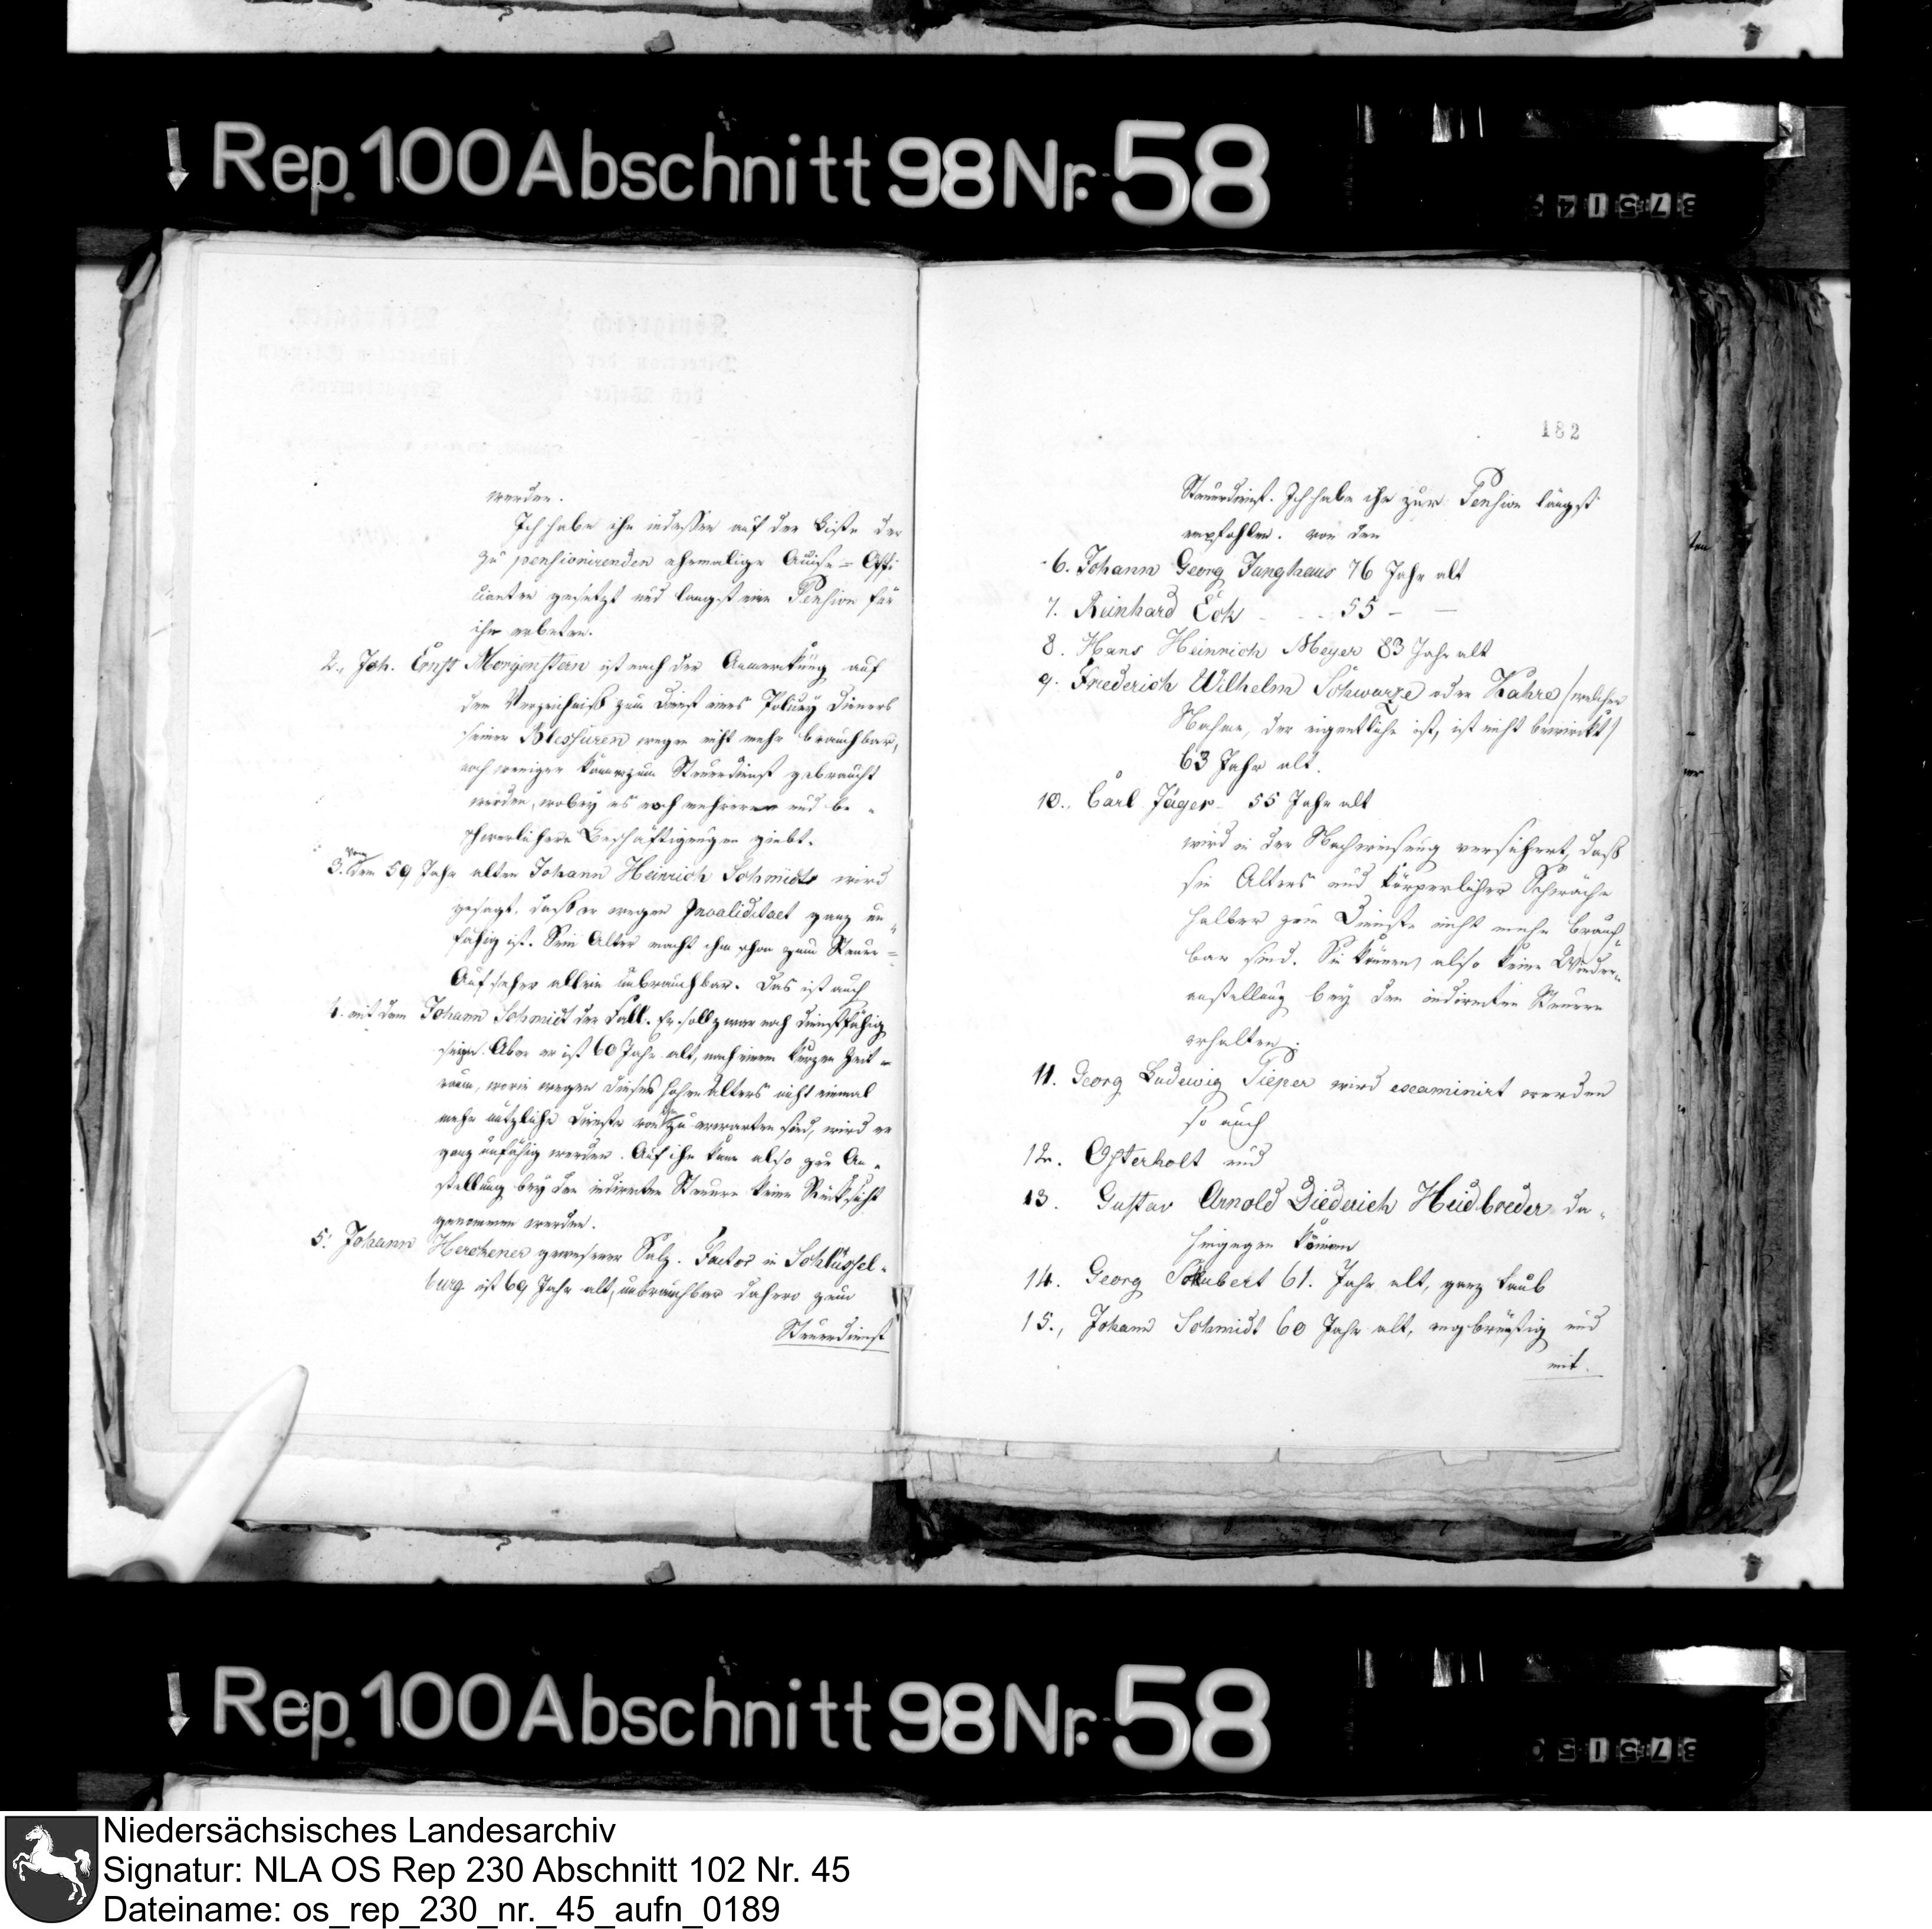 Rep. 100 Abschnitt 98 Nr. 58
werden.
Ich habe ihn indessen auf der Liste der
zu pensionirenden ehemalige Accise-Offi-
cianten gesetzt und langst eine Pension für
ihn erbeten.
2., Joh. Ernst Morgenstern ist nach der Anmerkung auf
dem Verzeichniß zum Dienst eines Policey Dieners
seiner Blessuren wegen nicht mehr brauchbar,
noch weniger kann er zum Steuerdienst gebraucht
werden, wobey es noch mehrere und be-
schwerlichere Beschäftigungen giebt.
3. Von dem 59 Jahr alten Johann Heinrich Schmidt wird
gesagt, daß er wegen Invaliditaet ganz un-
fähig ist. Sein Alter macht ihn schon zum Steuer=
Aufseher allein unbrauchbar. Das ist auch
4. mit dem Johann Schmidt der Fall. Er soll zwar noch dienstfähig
seyn. Aber er ist 60 Jahr alt, nach einem kurzen Zeit-
raum, worin wegen dieses hohen Alters nicht einmal
mehr nützliche Dienste von ihm zu erwarten sind, wird er
ganz unfähig werden. Auf ihn kann also zur An-
stellung bey den indirecten Steuern keine Rücksicht
genommen werden.
5. Johann Herchener gewesener Salz-Factor in Schlüssel-
burg ist 69 Jahr alt, unbrauchbar dahero zum
Steuerdienst
182
Steuerdienst. Ich habe ihn zur Pension längst
empfohlen. von den
6. Johann Georg Junghaus 76 Jahr alt
7. Reinhard Eck - - 55 - -
8. Hans Heinrich Meyer 83 Jahr alt
9. Friederich Wilhelm Schwarze oder Kahre /welcher
Nahme, der eigentliche ist, ist nicht bemerkt/
63 Jahr alt.
10. Carl Jäger - 55 Jahr alt
wird in der Nachweisung versichert, daß
sie Alters und körperlicher Schwäche
halber zum Dienste nicht mehr brauch-
bar sind. Sie können also keine Wieder-
anstellung bey den indirecten Steuern
erhalten.
11. Georg Ludewig Pieper wird examinirt werden
so auch
12. Osterholt und
13. Gustav Arnold Diederich Heidbreder da-
hingegen können
14. Georg Schubert 61. Jahr alt, ganz taub
15., Johann Schmidt 60 Jahr alt, engbrüstig und
mit
Rep. 100 Abschnitt 98 Nr. 58
Niedersächsisches Landesarchiv
Signatur: NLA OS Rep 230 Abschnitt 102 Nr. 45
Dateiname: os_rep_230_nr._45_aufn_0189